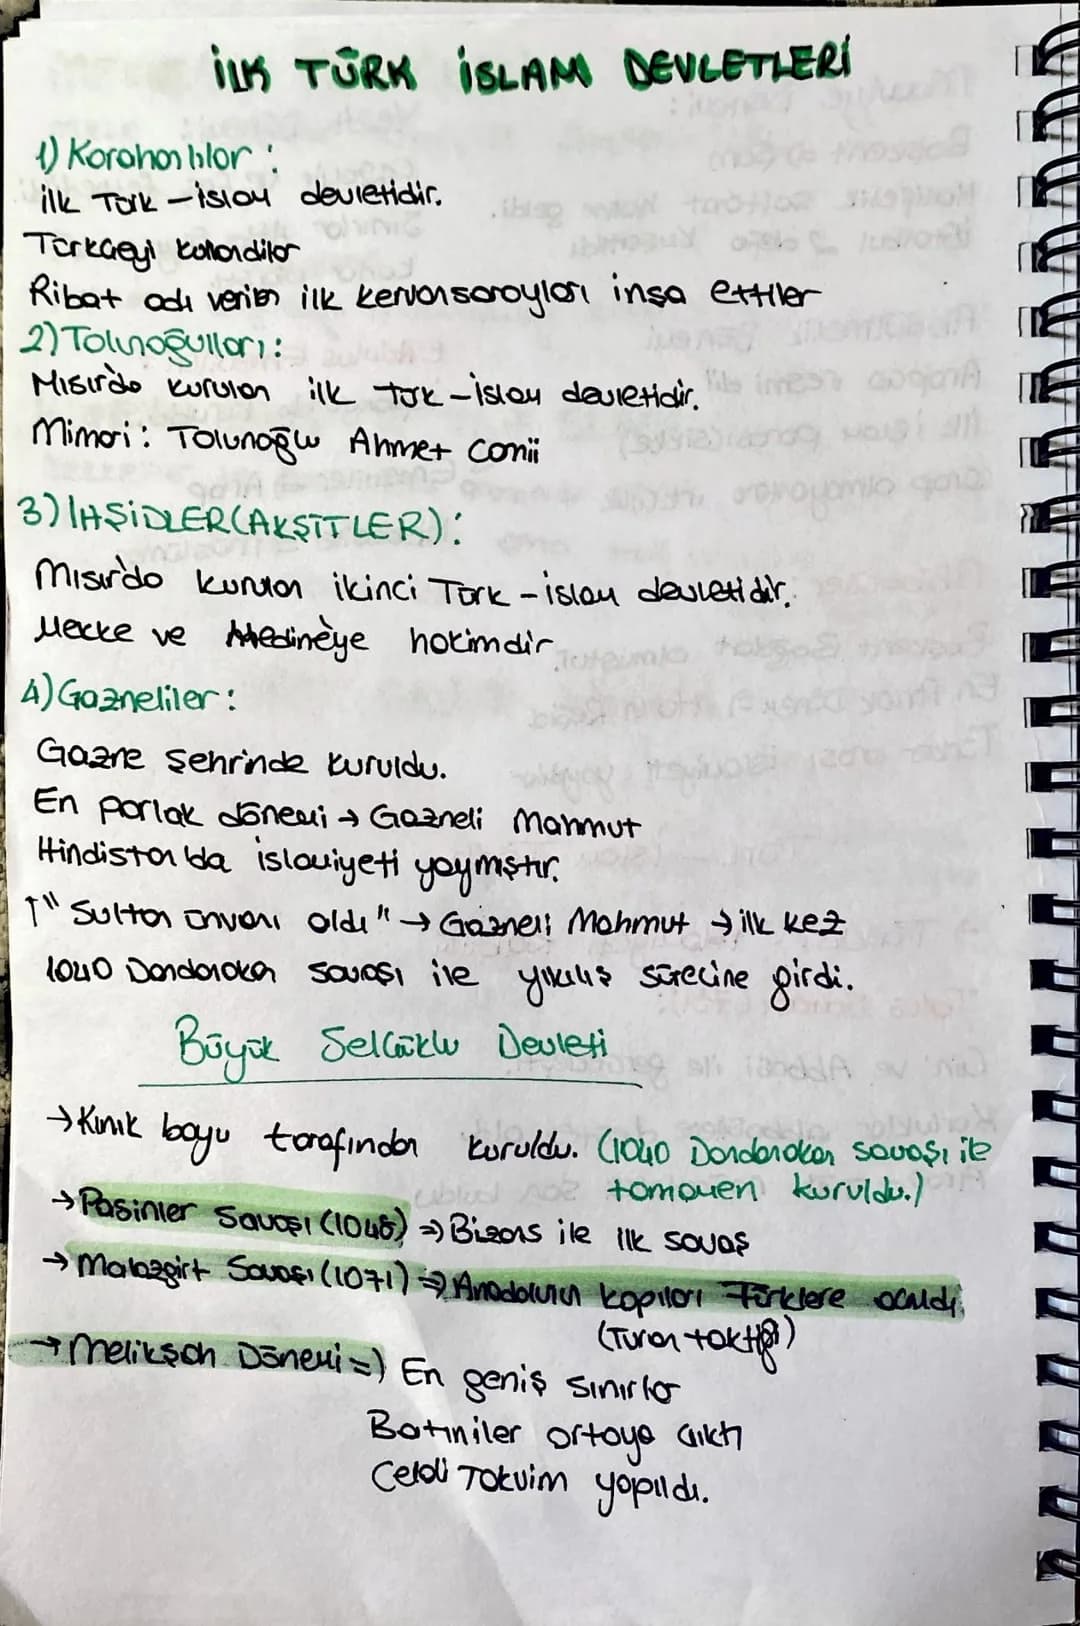 İLK TÜRK İSLAM DEVLETLERİ
1) Karahanlılar :
ilk Türk-islam devletidir.
Türkçeyi kullandılar
Ribat adı verilen ilk kervansarayları inşa ettiler
2) Tolunoğulları :
Mısır'da kurulan ilk Türk-İslam devletidir.
Mimari : Tolunoğlu Ahmet Camii
3) IHŞİDLER(AKŞİTLER) :
Mısır'da kurulan ikinci Türk-islam devletidir.
Mekke ve Medine'ye hakimdir
4) Gazneliler :
Gazne şehrinde kuruldu.
En parlak dönemi → Gazneli Mahmut
Hindistan'da islamiyeti yaymıştır.
↑"Sultan ünvanı aldı" → Gazneli Mahmut → ilk kez
1040 Dandanakan savaşı ile yıkılış sürecine girdi.
Büyük Selçuklu Devleti
→ Kınık boyu tarafından kuruldu. (1040 Dandanakan savaşı ile
tamamen kuruldu.)
→ Pasinler Savaşı (1048) ⇒ Bizans ile ilk savaş
→ Malazgirt Savaşı (1071) ⇒ Anadolunun kapıları Türklere açıldı.
(Turan taktiği)
→ Melikşah Dönemi =) En geniş sınırlar
Batıniler ortaya çıktı
Celali Takvim yapıldı.